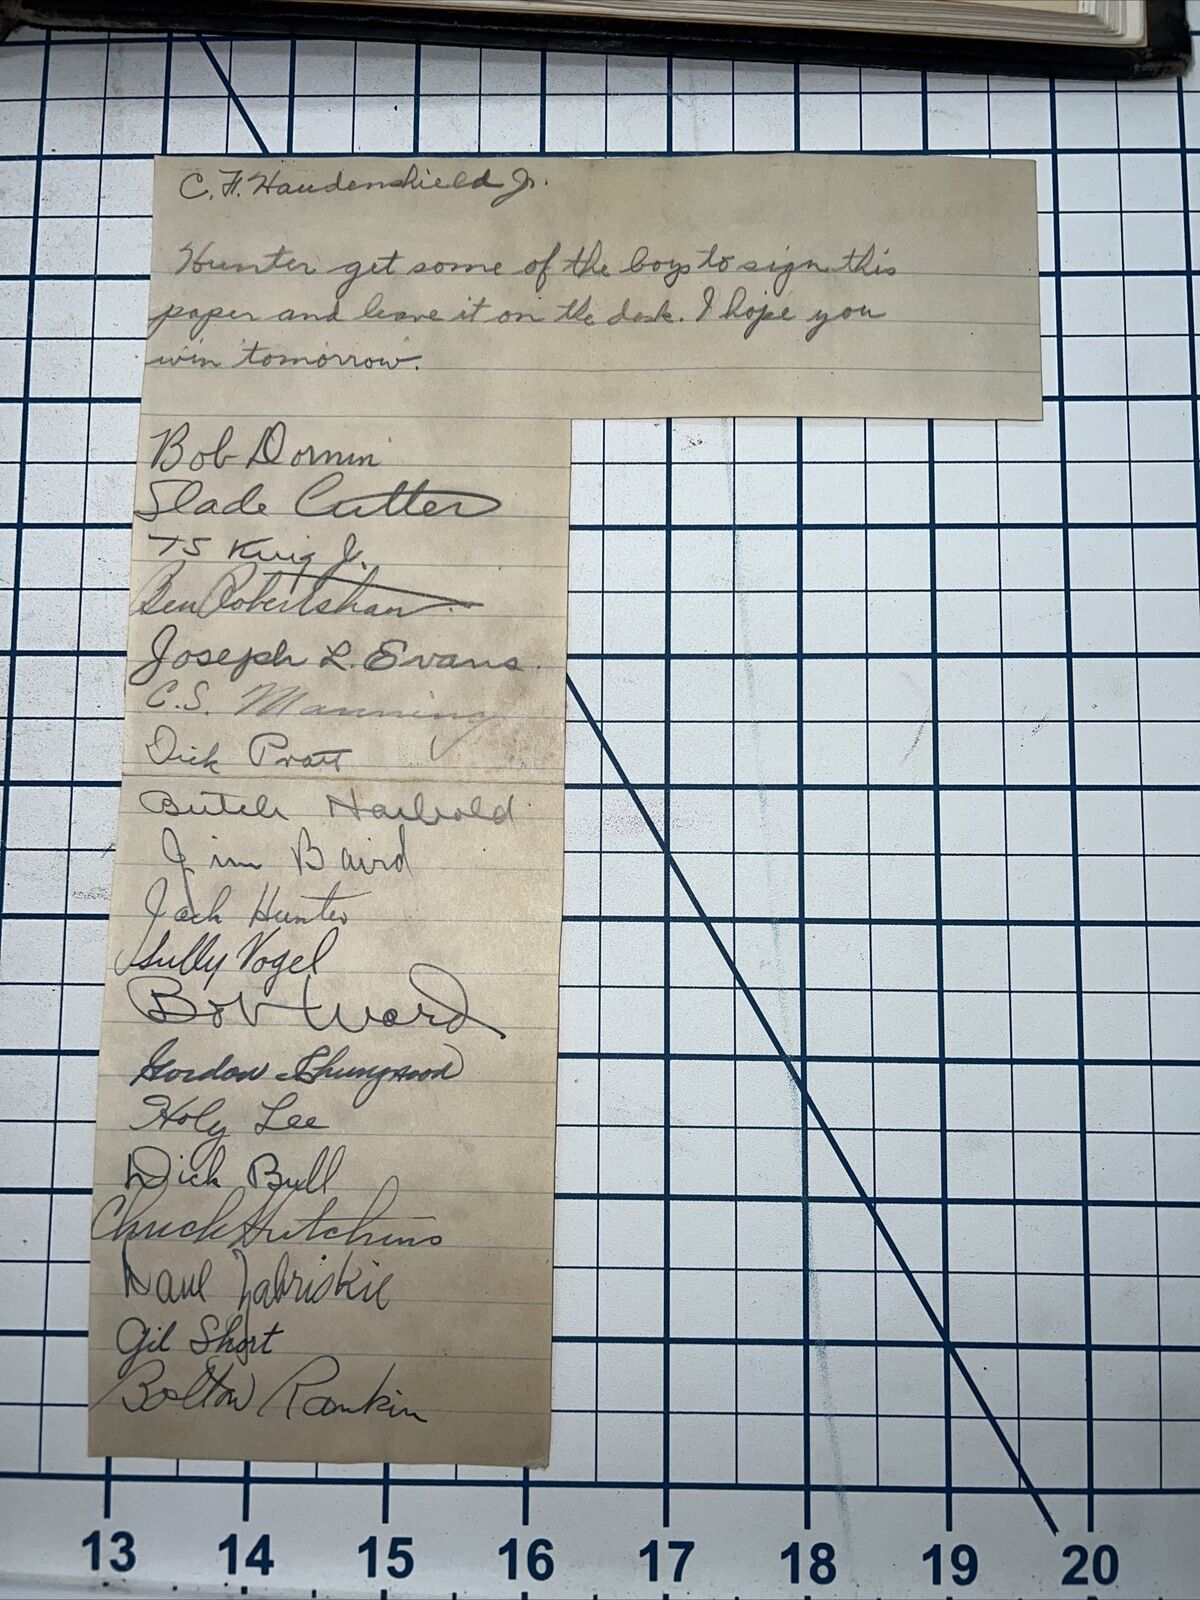 C. F. Haudenshield Jr.
Hunter get some of the boys to sign this
paper and leave it on the desk. I hope you
win tomorrow.
Bob Dornin
Slade Cutter
TS King Jr.
Ben Robertshaw
Joseph L. Evans
C.S. Manning
Dick Pratt
Butch Harbold
Jim Baird
Jack Hunter
Sully Vogel
Bob Ward
Gordon
Holy Lee
Dick Bull
Chuck Hutchins
Dave Zabriskie
Gil Short
Bolton Rankin
13 14 15 16 17 18 19 20